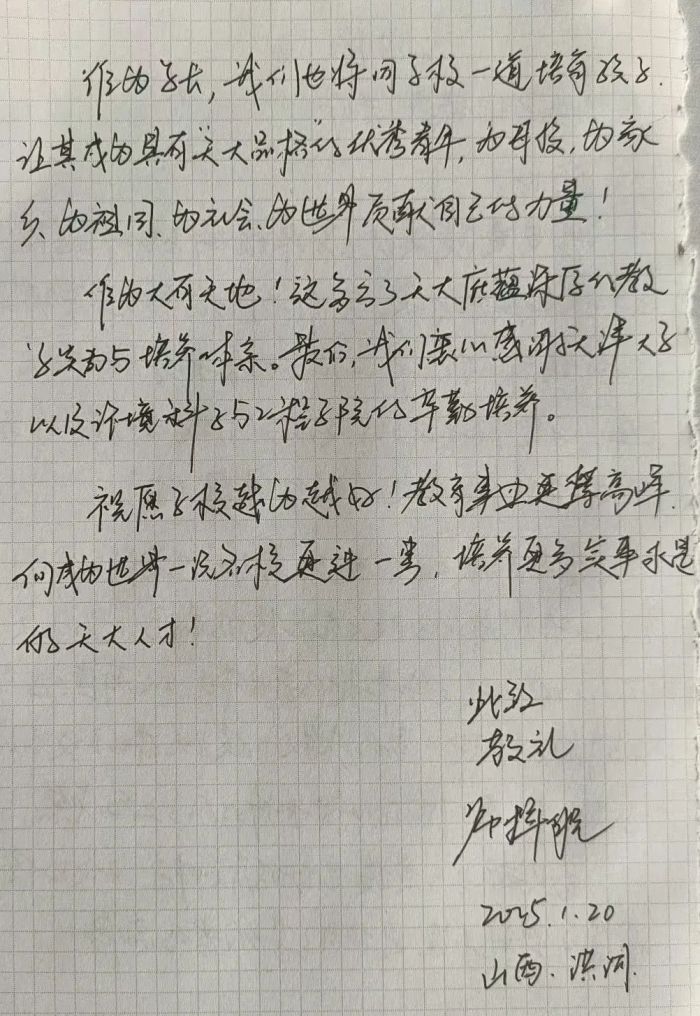 作为学长，我们也将同学校一道培育孩子.
让其成为具有“天大品格”的优秀青年，为母校，为家
乡、为祖国、为社会、为世界贡献自己的力量！
作为大有天地！这多亏了天大底蕴深厚的教
学尚与培养体系。最后，我们衷心感谢天津大学
以及环境科学与工程学院的辛勤培养。
祝愿学校越办越好！教育事业再攀高峰.
向成为世界一流名校再进一步，培养更多实事求是
的天大人才！
此致
敬礼
2025.1.20
山西.洪洞.